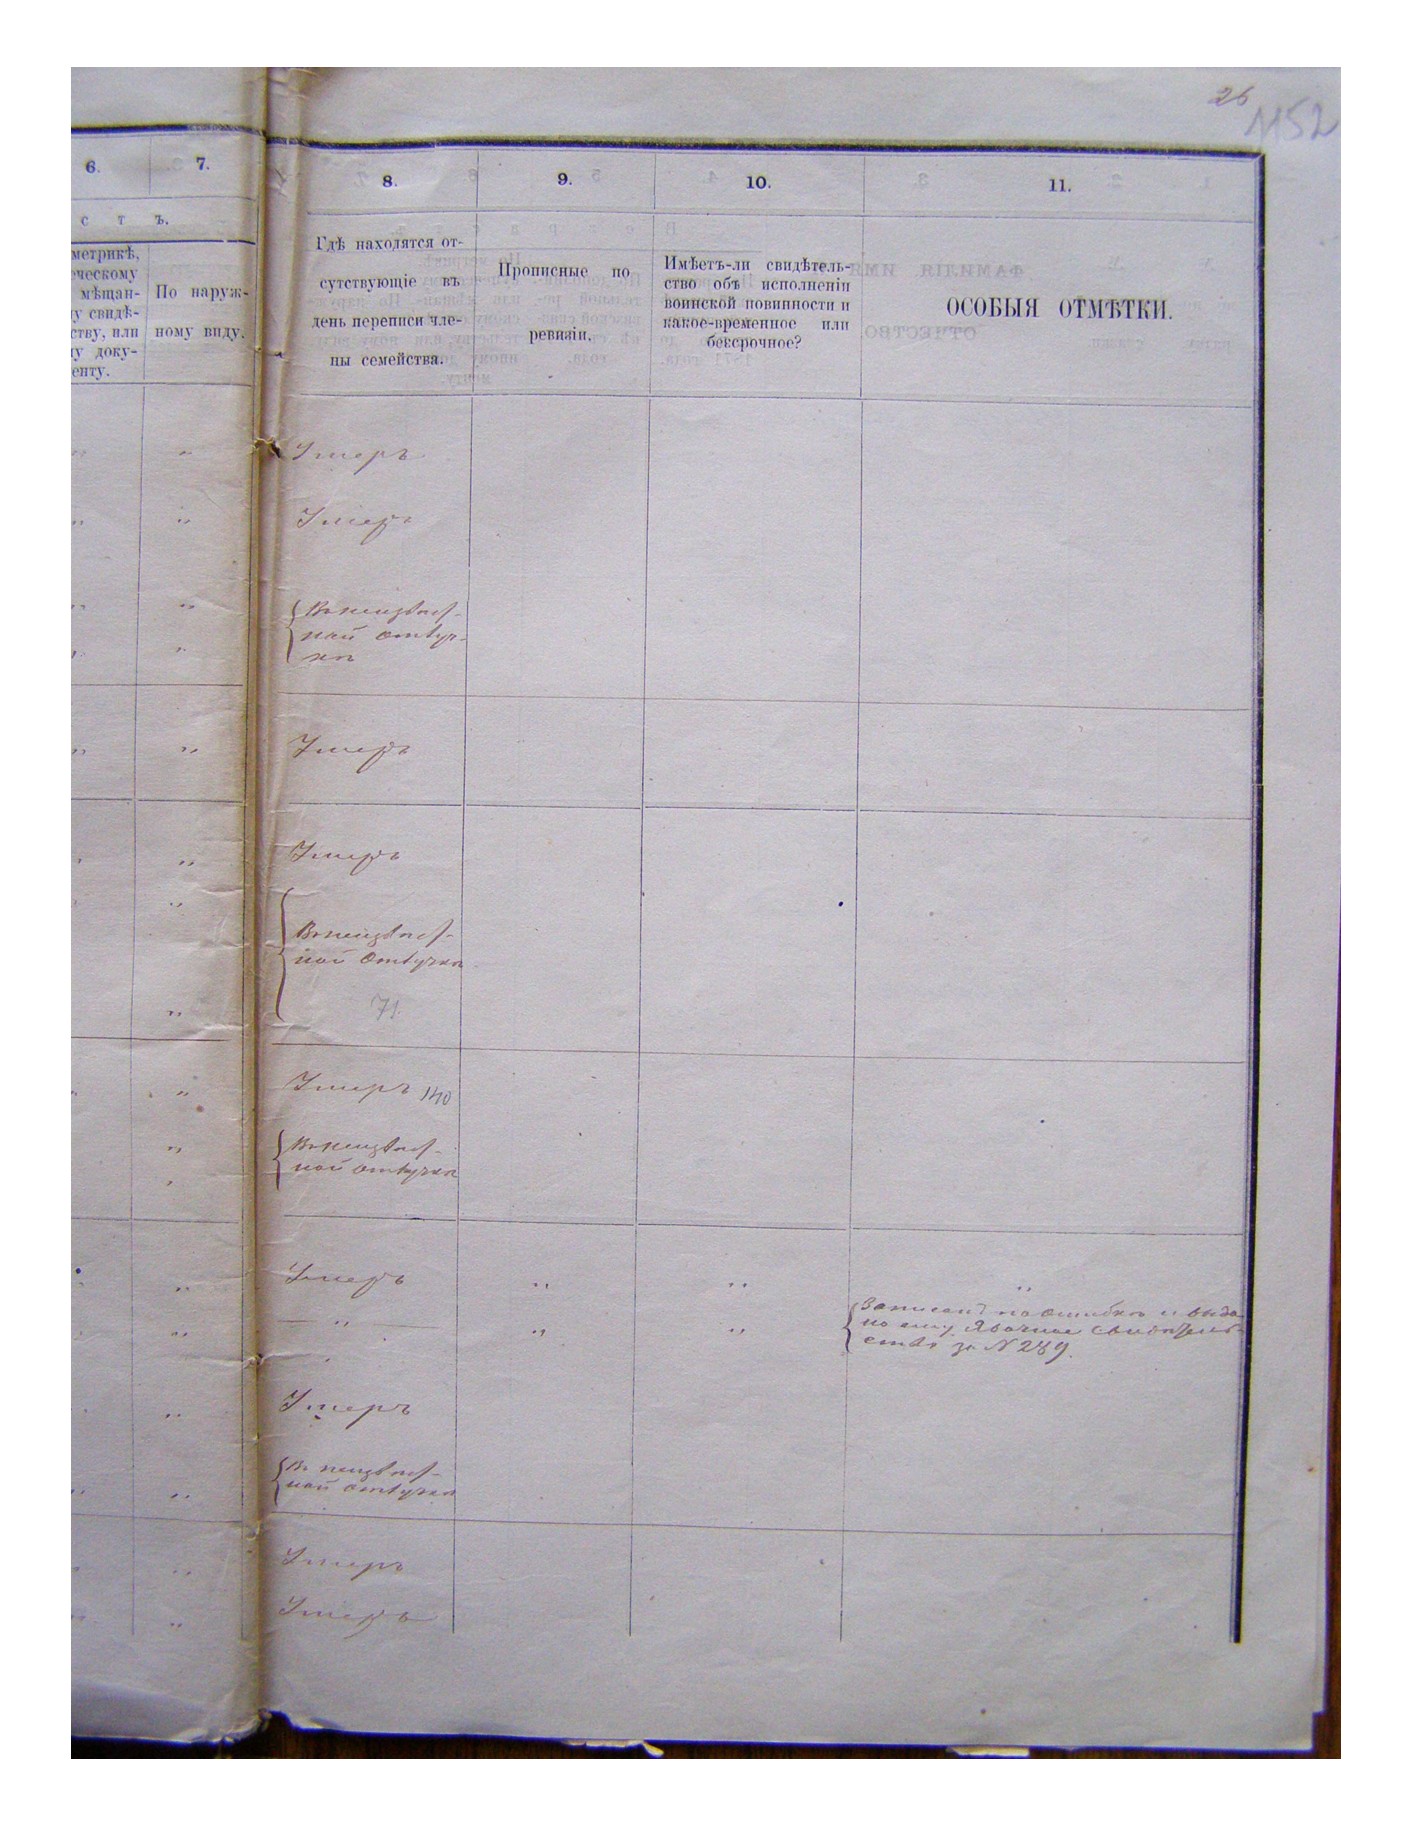 26
1152
6.
7.
8.
9.
10.
11.
с т ъ.
метрикѣ,
ческому
мѣщан-
у свидѣ-
ству, или
у доку-
енту.
По наруж-
ному виду.
Гдѣ находятся от-
сутствующіе въ
день переписи чле-
ны семейства.
Прописные по
ревизіи.
Имѣетъ-ли свидѣтель-
ство объ исполненіи
воинской повинности и
какое-временное или
безсрочное?
ОСОБЫЯ ОТМѢТКИ.
Умеръ
Умеръ
Въ неизвѣст-
ной отлуч-
кѣ
Умеръ
Умеръ
Въ неизвѣст-
ной отлучкѣ
71
Умеръ 140
Въ неизвѣст-
ной отлучкѣ
Умеръ
Записанъ по ошибкѣ и выда-
но ему Явочное свидѣтель-
ство за № 289.
Умеръ
Въ неизвѣст-
ной отлучкѣ
Умеръ
Умеръ